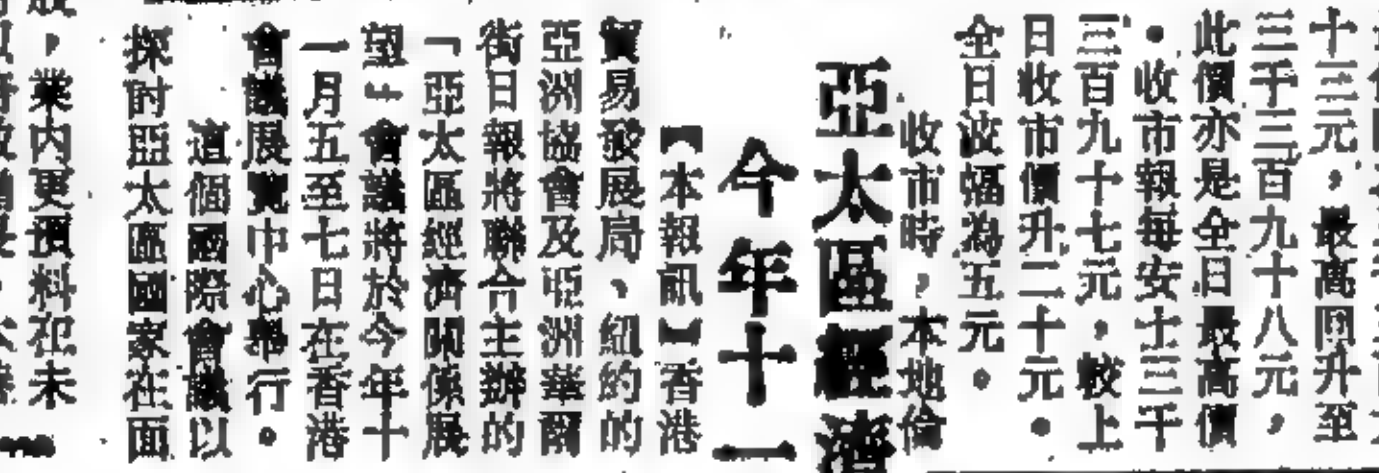 十三元，最高回升至
三千三百九十八元，
此價亦是全日最高價
。收市報每安士三千
三百九十七元，較上
日收市價升二十元。
全日波幅為五元。
收市時，本地倫
亞太區經濟
今年十一
【本報訊】香港
貿易發展局、紐約的
亞洲協會及亞洲華爾
街日報將聯合主辦的
「亞太區經濟關係展
望」會議將於今年十
一月五至七日在香港
會議展覽中心舉行。
這個國際會議以
探討亞太區國家在面
業內更預料在未